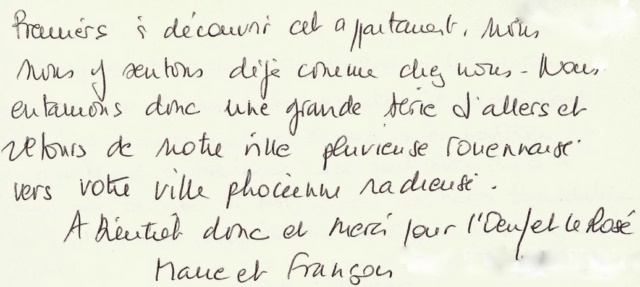 Premiers à découvrir cet appartement, nous
nous y sentons déjà comme chez nous - Nous
entamons donc une grande série d'allers et
retours de notre ville pluvieuse rouennaise
vers votre ville phocéenne radieuse.
A Bientôt donc et merci pour l'Oeuf et le Rosé
et François